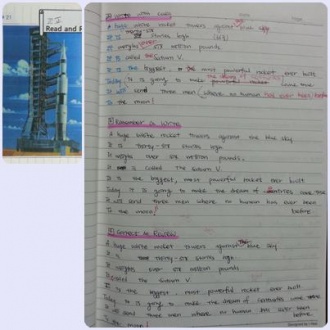 Read and F
A huge white rocket towers against
It is thirty-six stories high
It weighs over six million pounds
It is called The Saturn V.
It is the biggest, most powerful rocket ever built
Today it is going to make
It will send three men where no human has ever been before
To the moon!
Remember & Write
A huge white rocket towers against the blue sky
It is thirty-six stories high
It weighs over six million pounds.
It is called The Saturn V
It is the biggest, most powerful rocket ever built
Today it is going to make the dream of centuries come true
It will send three men where no human has ever been
before
To the moon!
A huge white rocket towers against the blue sky
It is thirty-six stories high
It weighs over six million pounds
It is called The Saturn V
It is the biggest, most powerful rocket ever built
Today it is going to make the dream of centuries come true
It will send three men where no human has ever been
before
To the moon!